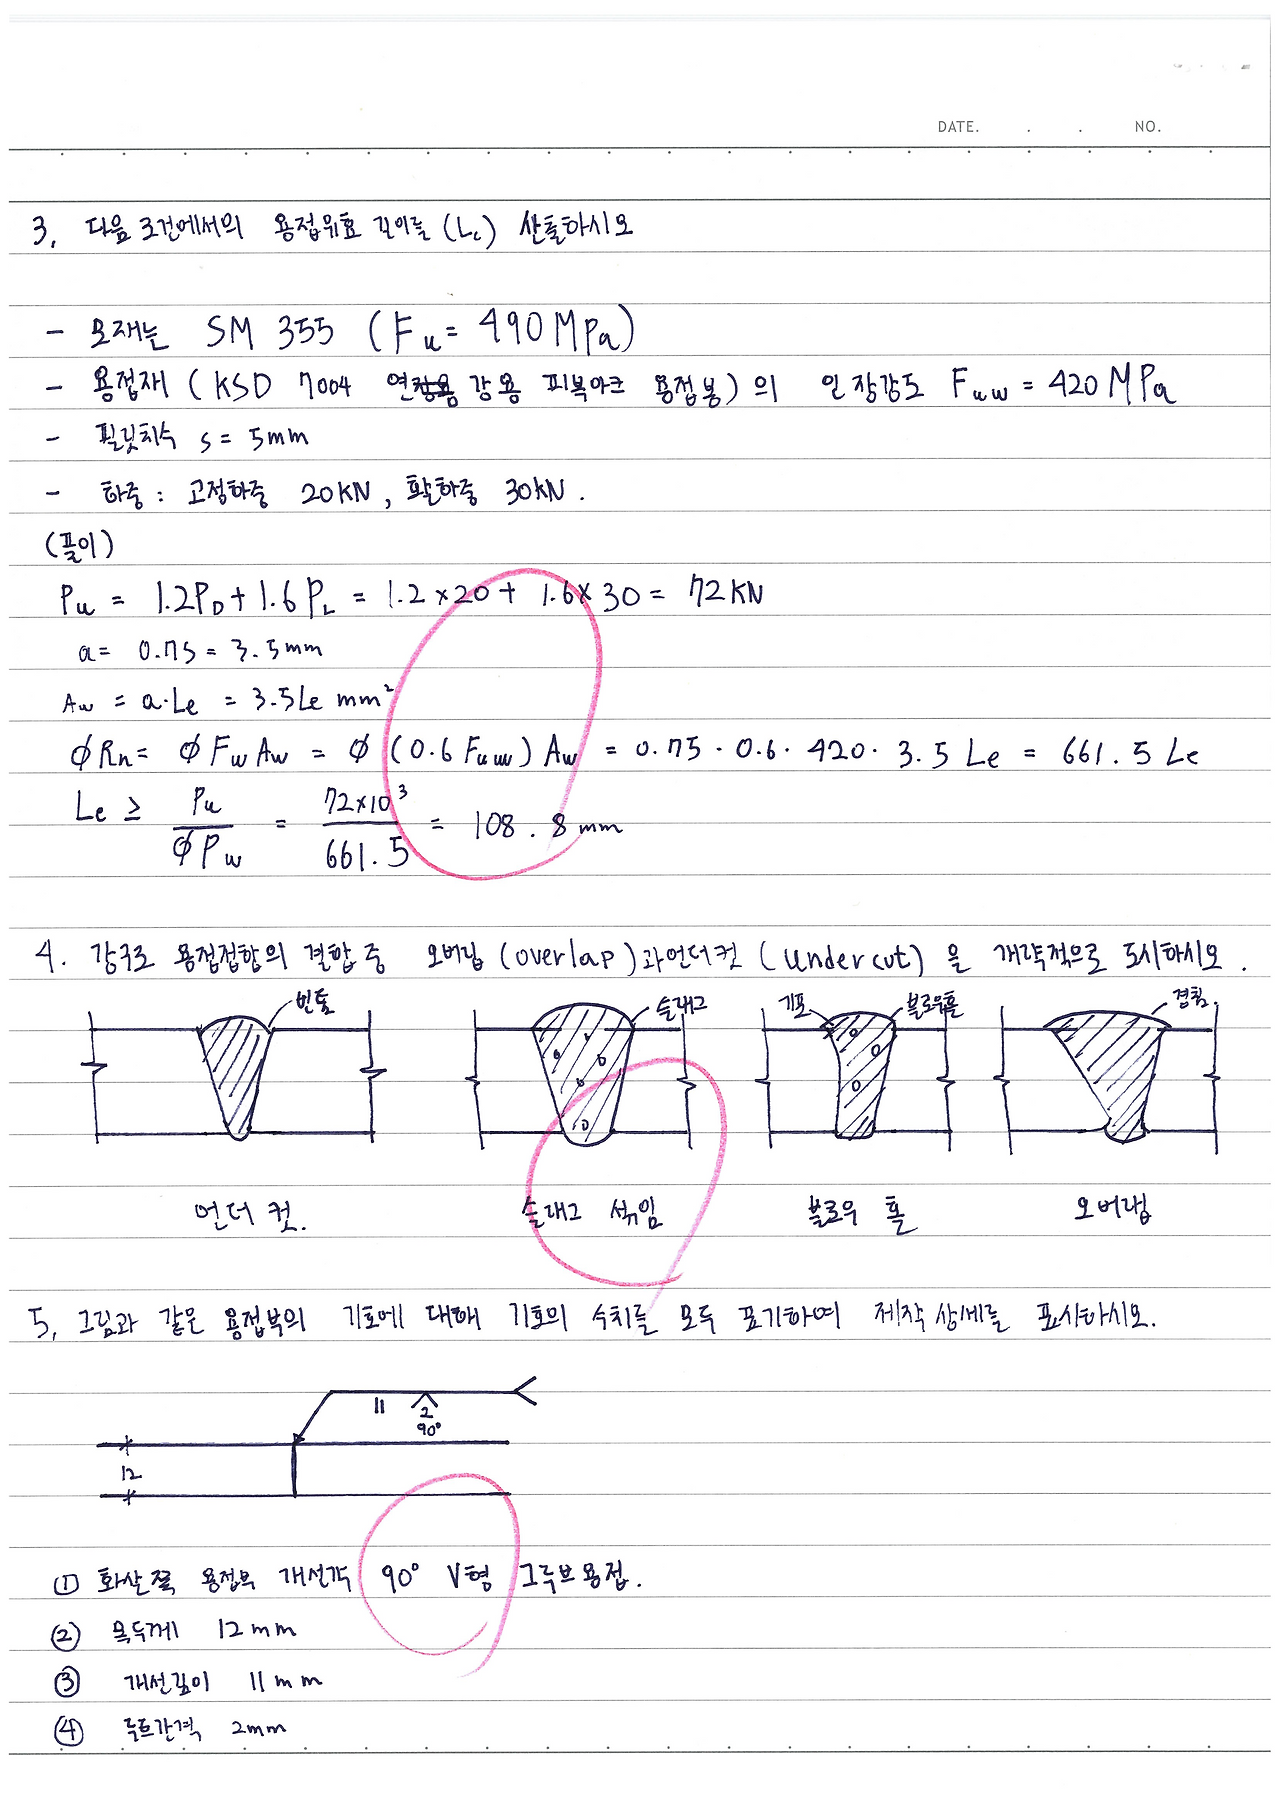 DATE. . . NO.
3. 다음 조건에서의 용접유효 길이를 (Le) 산출하시오
- 모재는 SM 355 (Fu = 490MPa)
- 용접재 (KSD 7004 연강용 피복아크 용접봉)의 인장강도 Fuw = 420MPa
- 필릿치수 s = 5mm
- 하중 : 고정하중 20KN, 활하중 30kN.
(풀이)
Pu = 1.2PD + 1.6PL = 1.2 × 20 + 1.6 × 30 = 72KN
a = 0.7s = 3.5mm
Aw = a·Le = 3.5Le mm²
ØRn = ØFwAw = Ø (0.6 Fuw) Aw = 0.75 · 0.6 · 420 · 3.5 Le = 661.5 Le
Le ≥ Pu / ØPw = 72×10³ / 661.5 = 108.8mm
4. 강구조 용접접합의 결함 중 오버랩 (overlap)과 언더컷 (undercut)을 개략적으로 도시하시오.
빈틈 슬래그 기포 블로우홀 겹침.
언더컷. 슬래그 섞임 블로우 홀 오버랩
5. 그림과 같은 용접부의 기호에 대해 기호의 수치를 모두 표기하여 제작 상세를 표시하시오.
11 2
90°
12
① 화살쪽 용접부 개선각 90° V형 그루브용접.
② 목두께 12mm
③ 개선깊이 11mm
④ 루트간격 2mm